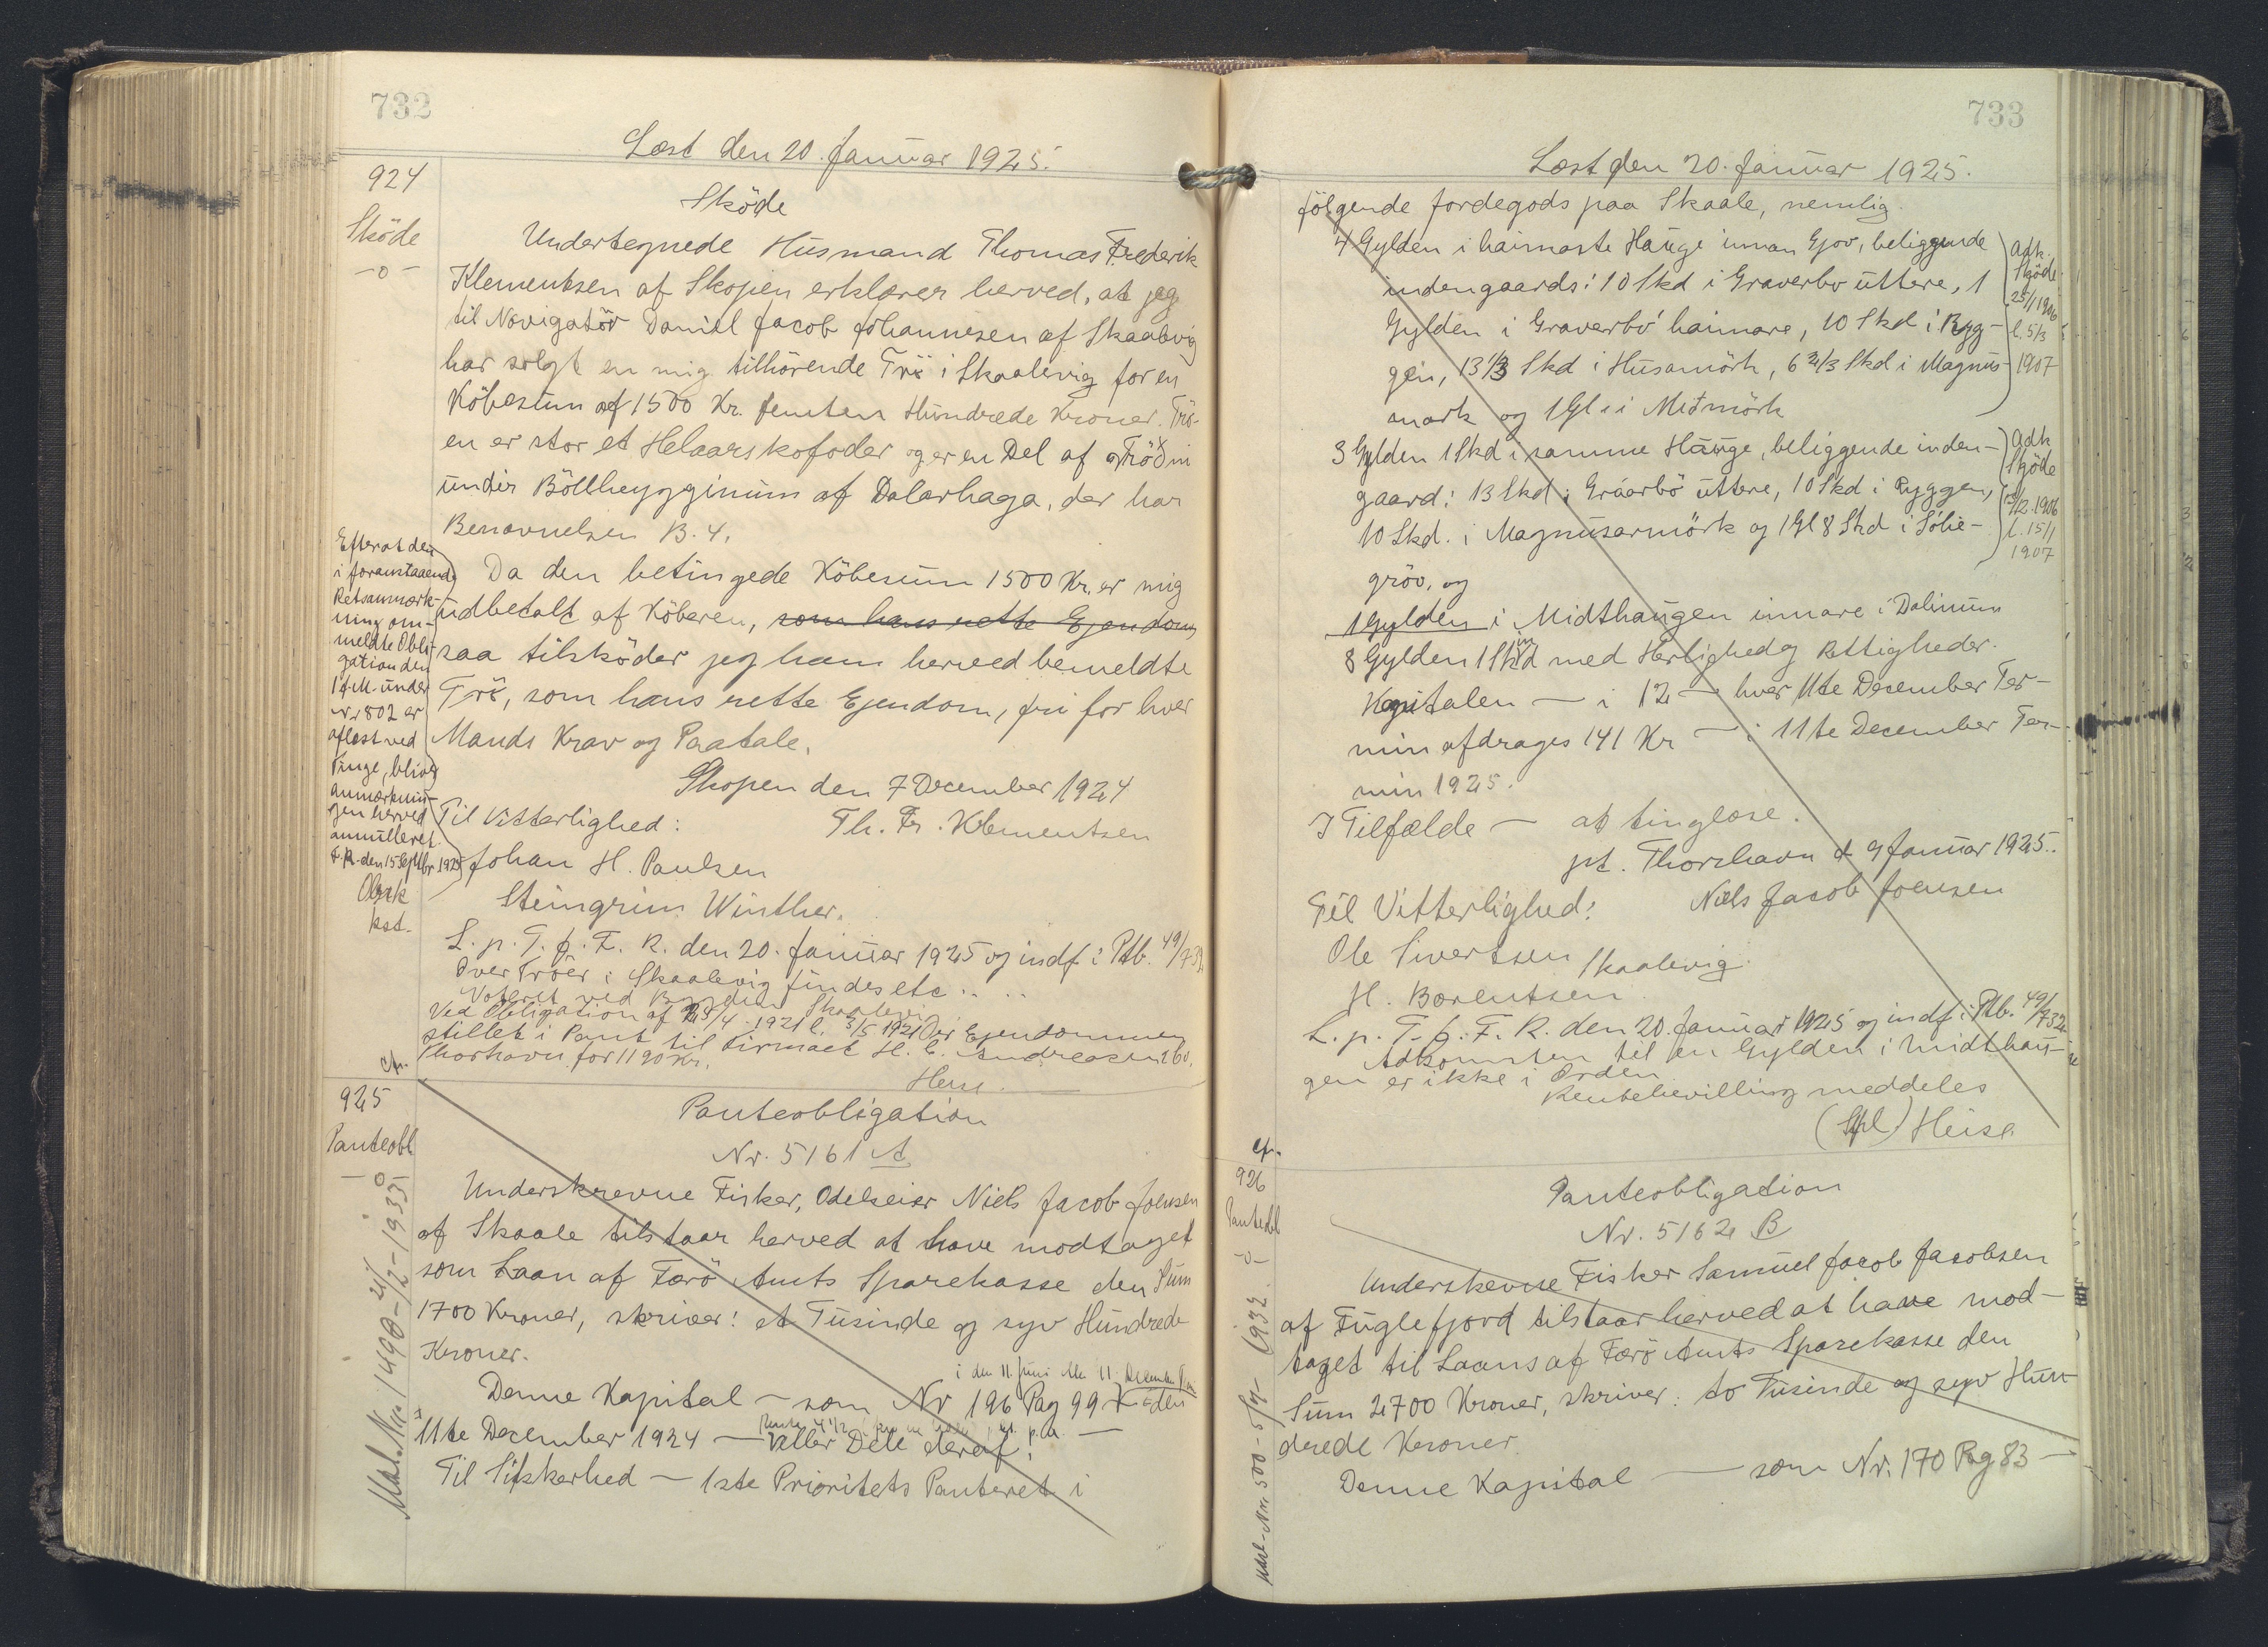 732
Læst den 20. Januar 1925.
924
Sköde
-o-
Sköde
Undertegnede Husmand Thomas Frederik
Klementsen af Skopen erklærer herved, at jeg
til Navigatör Daniel Jacob Johannesen af Skaalevig
har solgt en mig tilhörende Trö i Skaalevig for en
Köbesum af 1500 Kr. femten Hundrede Kroner. Trö-
en er stor et Helaarskofoder og er en Del af Tröðni
undir Böllheygginum af Dalarhaga, der har
Benævnelsen B. 4.
Da den betingede Köbesum 1500 Kr. er mig
udbetalt af Köberen, som hans rette Ejendom,
saa tilsköder jeg ham herved bemeldte
Trö, som hans rette Ejendom, fri for hver
Mands Krav og Paatale.
Skopen den 7 December 1924
Til Vitterlighed: Th. Fr. Klementsen
Johan H. Paulsen
Steingrim Winther.
L. p. T. f. F. R. den 20. Januar 1925 og indf. i Ptb. 49/732
Over Tröer i Skaalevig findes etc....
Noteret ved Bygden Skaalevig
Ved Obligation af 25/4 1921 l. 3/5 1921 er Ejendommen
stillet i Pant til Firmaet H. C. Andreasen & Co.
Thorshavn for 1190 Kr.
Heise.
Efterat den
i foranstaaende
Retsanmærk-
ning om-
meldte Obli-
gation den
1 f.M. under
Nr 802 er
aflæst ved
Tinge, bliver
anmærknin-
gen herved
annulleret.
F. R. den 15 Septbr 1925
kst.
cfr.
925
Panteobl
-o-
Mat. Nr. 1490 - 21/12 - 1935
Panteobligation
Nr. 5161 A
Underskrevne Fisker, Odelseier Niels Jacob Joensen
af Skaale tilstaar herved at have modtaget
som Laan af Færö Amts Sparekasse den Sum
1700 Kroner, skriver: et Tusinde og syv Hundrede
Kroner.
i den 11 Juni eller 11 December Ter
Denne Kapital - som Nr 196 Pag 99 - den
11te December 1924 - eller Dele deraf! -
Til Sikkerhed - 1ste Prioritets Panteret i
733
Læst den 20. Januar 1925.
fölgende Jordegods paa Skaale, nemlig
4 Gylden i haimasta Hauge innan Gjov, beliggende
indengaards: 10 Skd i Graverbö uttere, 1
Gylden i Graverbö haimare, 10 Skd i Ryg-
gen, 13 1/3 Skd i Husamörk, 6 2/3 Skd i Magnus-
mark og 1 Gl i Miðmörk
Adk.
Sköde
25/1 1906
l. 5/3
1907
3 Gylden 1 Skd i samme Hauge, beliggende inden-
gaard: 13 Skd i Gráarbö uttere, 10 Skd i Ryggen,
10 Skd. i Magnusarmörk og 1 Gl 8 Skd i Sólie-
gröv, og
Adk
Sköde
1906
l. 15/1
1907
1 Gylden i Midthaugen innare i Dalinum
8 Gylden 1 Skind med Herlighed og Rettigheder.
Kapitalen - i 12 - hver 11te December Ter-
min afdrages 141 Kr - i 11te December Ter-
min 1925.
I Tilfælde - at tinglæse.
pt. Thorshavn d 9 Januar 1925.
Til Vitterlighed: Niels Jacob Joensen
Ole Sivertsen Skaalevig
H. Berentsen
L. p. T. f. F. R. den 20. Januar 1925 og indf. i Ptb. 49/732
Adkomsten til en Gylden i Midthau-
gen er ikke i Orden
Rentebevilling meddeles
Heise
cfr.
926
Panteobl
-o-
Mat. Nr. 500 - 1932
Panteobligation
Nr. 5162 B
Underskevne Fisker Samuel Jacob Jacobsen
af Fuglefjord tilstaar herved at have mod-
taget til Laans af Færö Amts Sparekasse den
Sum 2700 Kroner, skriver: to Tusinde og syv Hun-
drede Kroner.
Denne Kapital - som Nr. 170 Pag 83 -